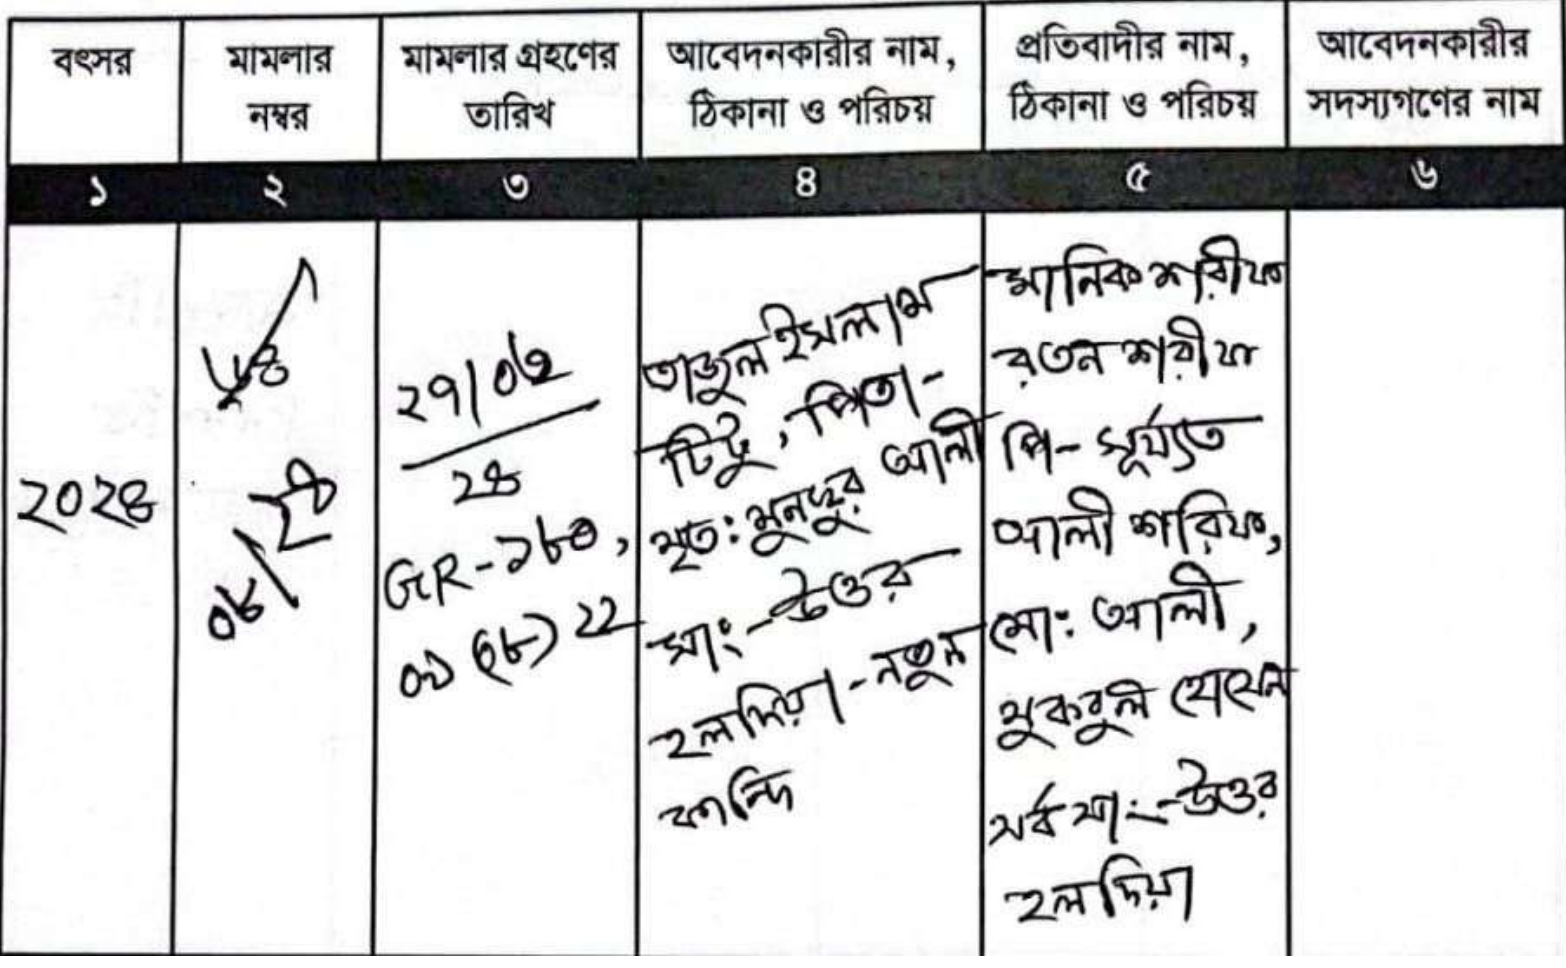 বৎসর
মামলার
নম্বর
মামলার গ্রহণের
তারিখ
আবেদনকারীর নাম,
ঠিকানা ও পরিচয়
প্রতিবাদীর নাম,
ঠিকানা ও পরিচয়
আবেদনকারীর
সদস্যগণের নাম
১
২
৩
৪
৫
৬
২০২৪
০৮/২৪
২৭/০৬
২৪
GR-১৮০,
২২
তাজুল ইসলাম
টিটু, পিতা-
মৃত: মুনছুর আলী
সাং:-উত্তর
হলদিয়া-নতুন
কান্দি
মানিক শরীফ
রতন শরীফ
পি- সূর্য্যত
আলী শরিফ,
মো: আলী,
মুকবুল হোসেন
সর্ব সাং:-উত্তর
হলদিয়া